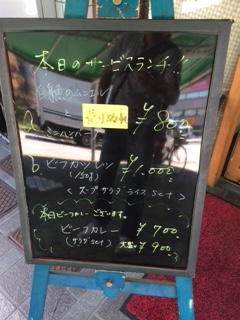 本日のサービスランチ!!
魚のムニエル
と
a. ミニハンバーグ ¥800
売り切れ
b. ビーフカツレツ ¥1,000
(150g)
<スープ サラダ ライス set>
本日ビーフカレーございます。
ビーフカレー ¥700
(サラダ set) 大盛 ¥900